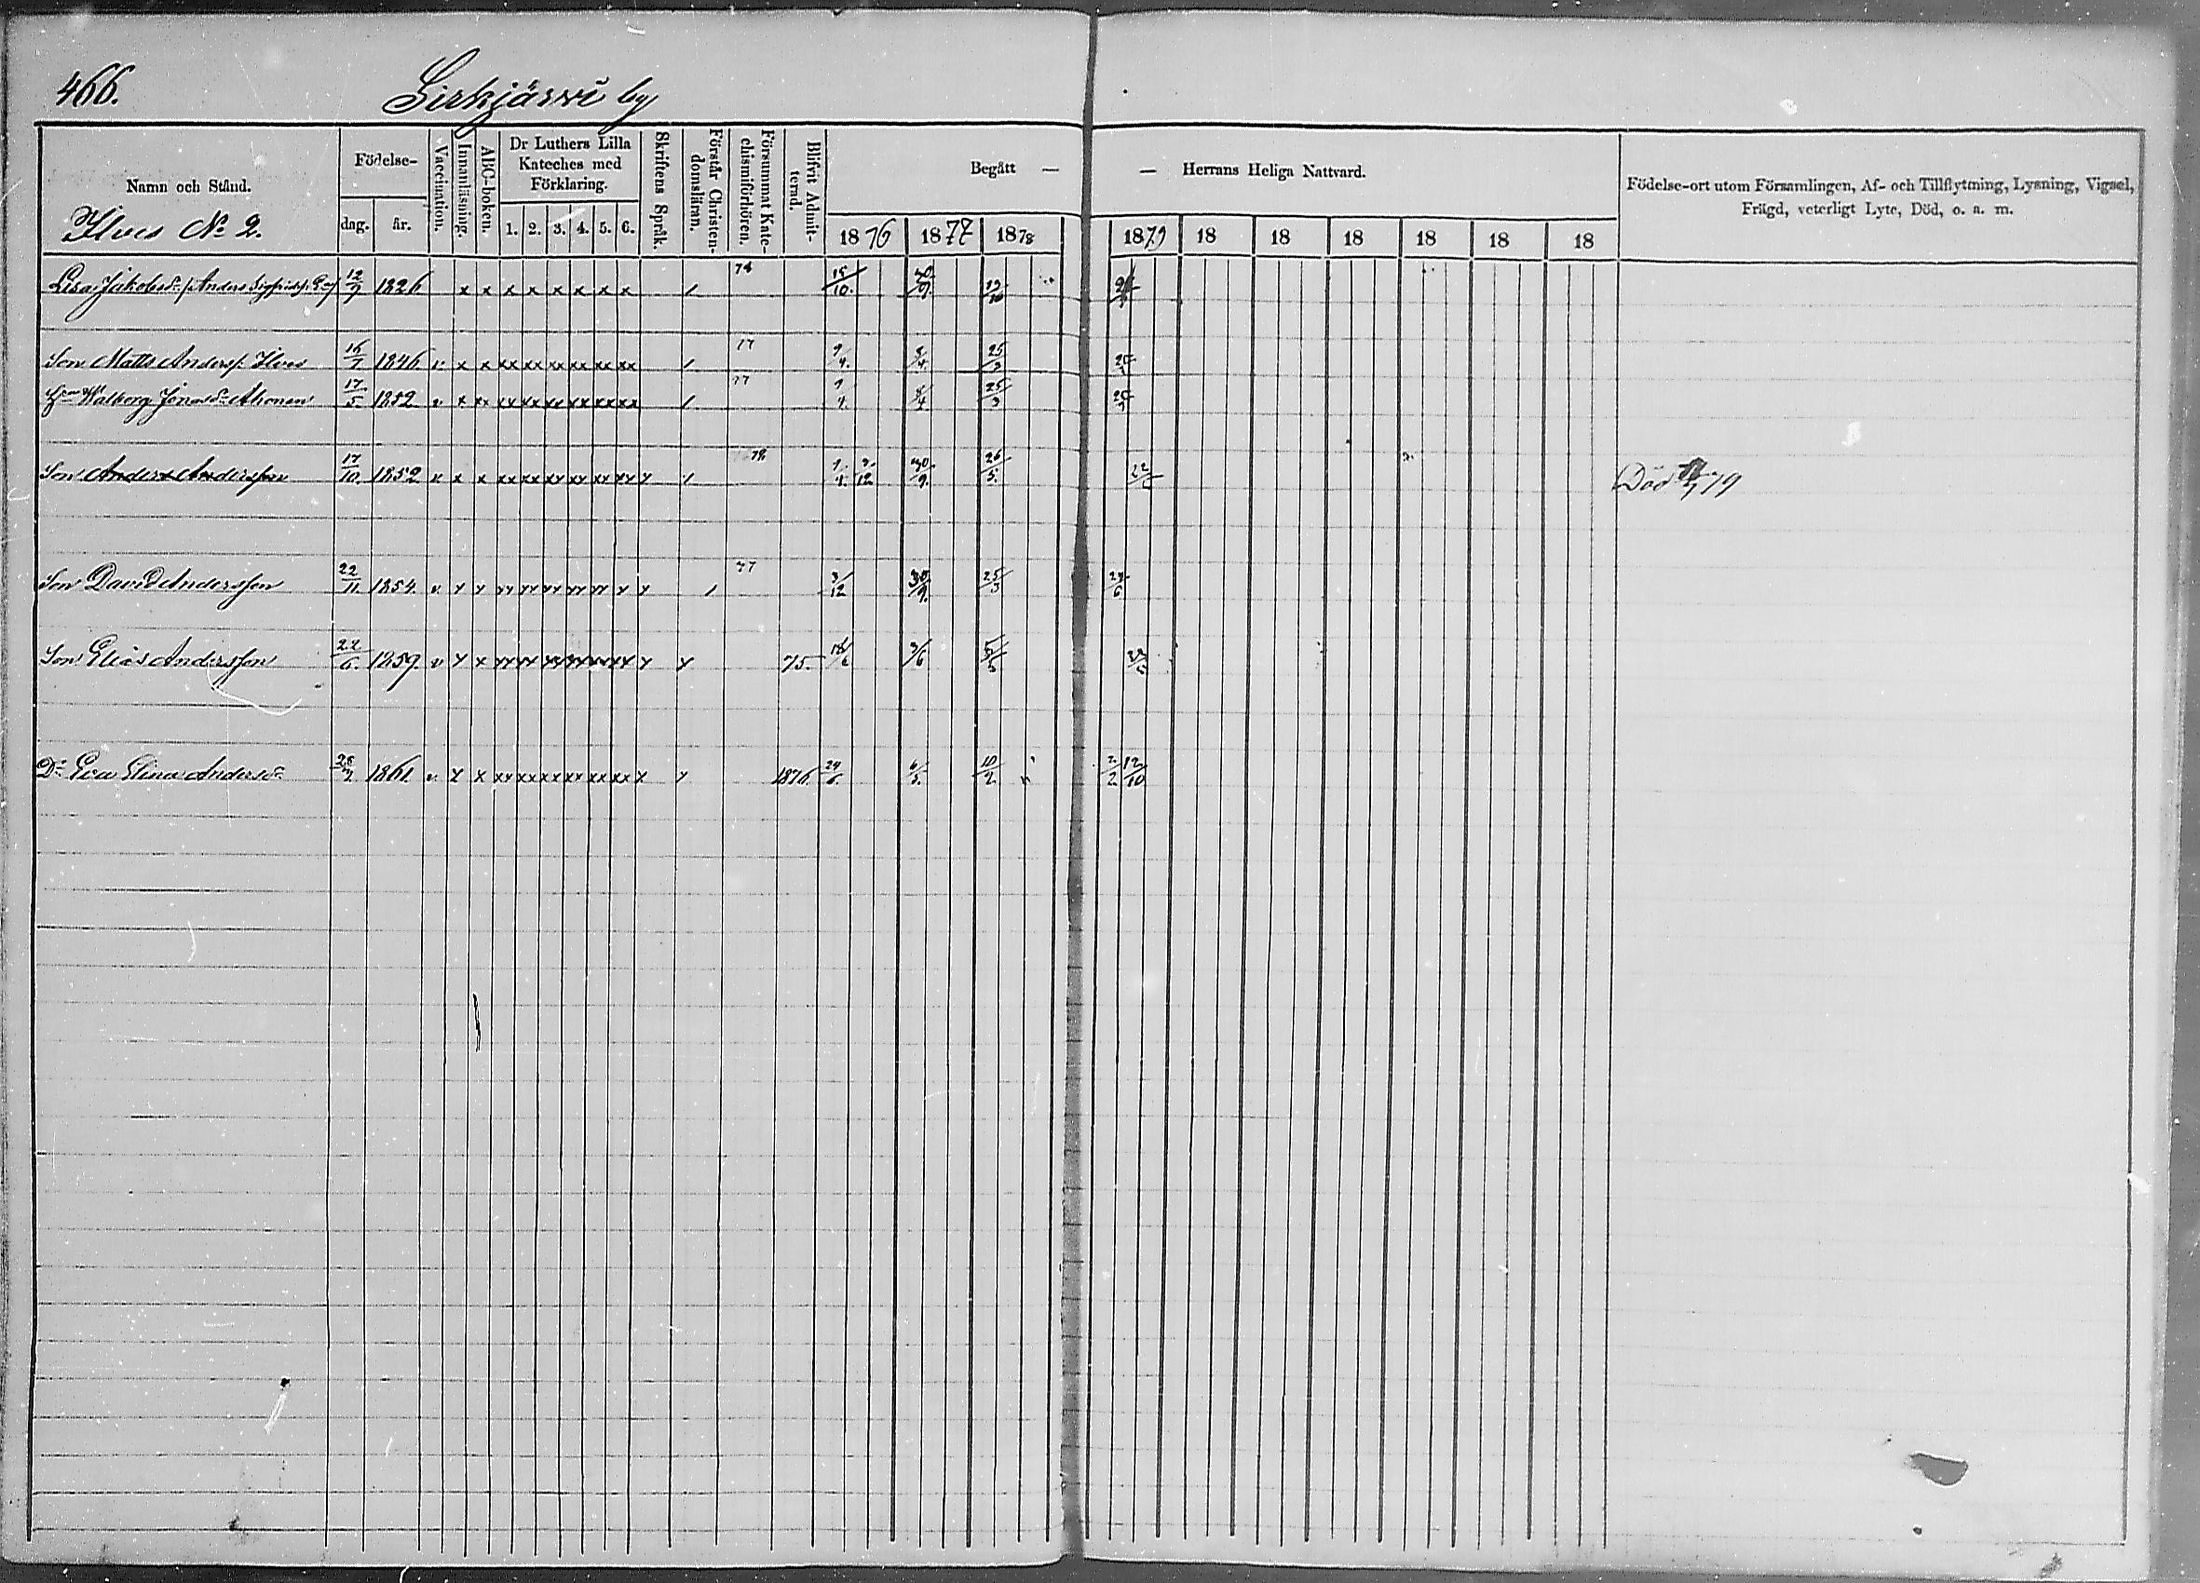 466.
Sirkjärwi by
Namn och Stånd.
Ilves No 2.
Födelse-
dag.
år.
Vaccination.
Innanläsning.
ABC-boken.
Dr Luthers Lilla
Kateches med
Förklaring.
1. 2. 3. 4. 5. 6.
Skriftens Språk.
Förstår Christen-
domsläran.
Försummat Kate-
chismiförhören.
Blifvit Admit-
terad.
Begått —
— Herrans Heliga Nattvard.
1876 1877 1878 1879 18 18 18 18 18 18
Födelse-ort utom Församlingen, Af- och Tillflyttning, Lysning, Vigsel,
Frägd, veterligt Lyte, Död, o. a. m.
Lisa Jakobsdr (Anders Sigfridsf. 12/7 1826 x x x x x x x x 15/10. 30/9.
Son Matts Andersf. Ilves 16/7 1846 v. x x xx xx xx xx xx xx 77 9/4. 25/3
Hu Walborg Jonasdr Ahonen 17/5. 1852 v. x xx xx xx xx xx xx xx 77 25/3
Son Anders Andersson 17/10. 1852 v. x x xx xx xx xx xx xx x 78 30/9. 26/5. Död 79
Son David Andersson 22/11. 1854. v. x x xx xx xx xx xx x x 77 3/12 30/9. 25/3 29/6
Son Elias Andersson 22/6. 1859. v x x xx xx xx xx xx xx x x 75. 18/6 3/6
Dr Eva Stina Andersdr 1861 v. x x xx xx xx xx xx xx x x 1876. 24/6. 6/5. 10/2. 2/2 12/10